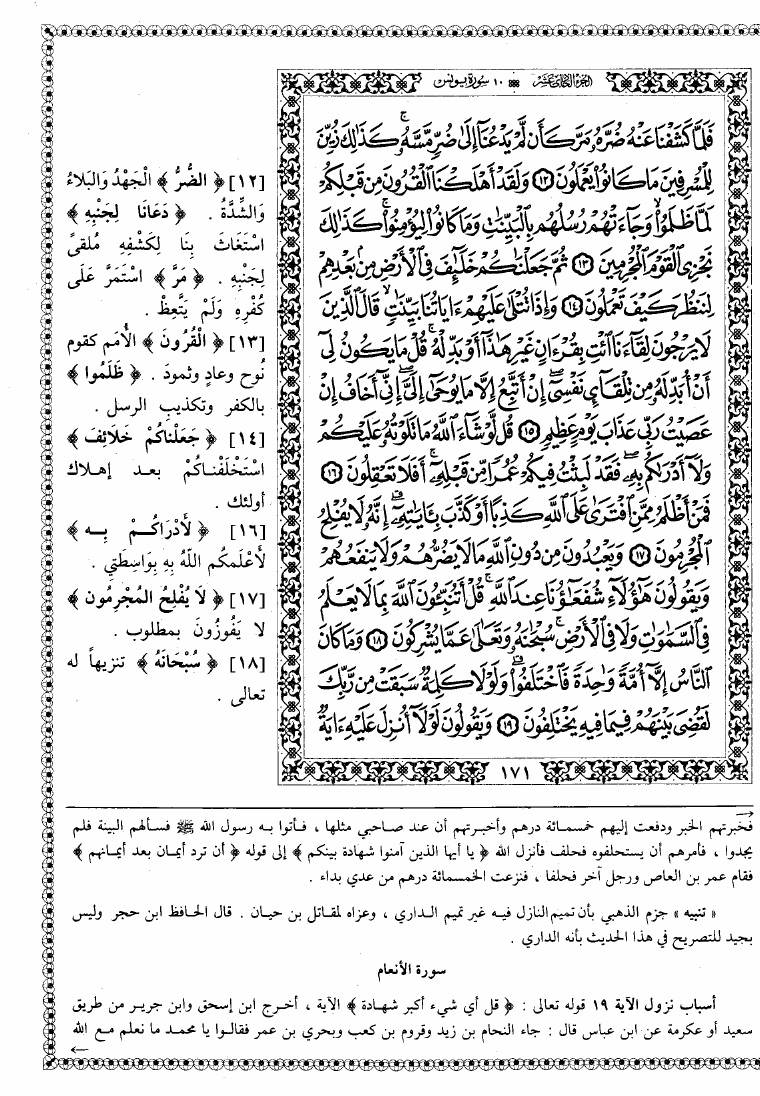 الجزء الحادي عشر ١٠ سورة يونس
فَلَمَّا كَشَفْنَا عَنْهُ ضُرَّهُۥ مَرَّ كَأَن لَّمْ يَدْعُنَآ إِلَىٰ ضُرٍّ مَّسَّهُۥ ۚ كَذَٰلِكَ زُيِّنَ
لِلْمُسْرِفِينَ مَا كَانُوا۟ يَعْمَلُونَ ١٢ وَلَقَدْ أَهْلَكْنَا ٱلْقُرُونَ مِن قَبْلِكُمْ
لَمَّا ظَلَمُوا۟ ۙ وَجَآءَتْهُمْ رُسُلُهُم بِٱلْبَيِّنَٰتِ وَمَا كَانُوا۟ لِيُؤْمِنُوا۟ ۚ كَذَٰلِكَ
نَجْزِى ٱلْقَوْمَ ٱلْمُجْرِمِينَ ١٣ ثُمَّ جَعَلْنَٰكُمْ خَلَٰٓئِفَ فِى ٱلْأَرْضِ مِنۢ بَعْدِهِمْ
لِنَنظُرَ كَيْفَ تَعْمَلُونَ ١٤ وَإِذَا تُتْلَىٰ عَلَيْهِمْ ءَايَاتُنَا بَيِّنَٰتٍ ۙ قَالَ ٱلَّذِينَ
لَا يَرْجُونَ لِقَآءَنَا ٱئْتِ بِقُرْءَانٍ غَيْرِ هَٰذَآ أَوْ بَدِّلْهُ ۚ قُلْ مَا يَكُونُ لِىٓ
أَنْ أُبَدِّلَهُۥ مِن تِلْقَآئِ نَفْسِىٓ ۖ إِنْ أَتَّبِعُ إِلَّا مَا يُوحَىٰٓ إِلَىَّ ۖ إِنِّىٓ أَخَافُ إِنْ
عَصَيْتُ رَبِّى عَذَابَ يَوْمٍ عَظِيمٍ ١٥ قُل لَّوْ شَآءَ ٱللَّهُ مَا تَلَوْتُهُۥ عَلَيْكُمْ
وَلَآ أَدْرَىٰكُم بِهِۦ ۖ فَقَدْ لَبِثْتُ فِيكُمْ عُمُرًا مِّن قَبْلِهِۦٓ ۚ أَفَلَا تَعْقِلُونَ ١٦
فَمَنْ أَظْلَمُ مِمَّنِ ٱفْتَرَىٰ عَلَى ٱللَّهِ كَذِبًا أَوْ كَذَّبَ بِـَٔايَٰتِهِۦٓ ۚ إِنَّهُۥ لَا يُفْلِحُ
ٱلْمُجْرِمُونَ ١٧ وَيَعْبُدُونَ مِن دُونِ ٱللَّهِ مَا لَا يَضُرُّهُمْ وَلَا يَنفَعُهُمْ
وَيَقُولُونَ هَٰٓؤُلَآءِ شُفَعَٰٓؤُنَا عِندَ ٱللَّهِ ۚ قُلْ أَتُنَبِّـُٔونَ ٱللَّهَ بِمَا لَا يَعْلَمُ
فِى ٱلسَّمَٰوَٰتِ وَلَا فِى ٱلْأَرْضِ ۚ سُبْحَٰنَهُۥ وَتَعَٰلَىٰ عَمَّا يُشْرِكُونَ ١٨ وَمَا كَانَ
ٱلنَّاسُ إِلَّآ أُمَّةً وَٰحِدَةً فَٱخْتَلَفُوا۟ ۚ وَلَوْلَا كَلِمَةٌ سَبَقَتْ مِن رَّبِّكَ
لَقُضِىَ بَيْنَهُمْ فِيمَا فِيهِ يَخْتَلِفُونَ ١٩ وَيَقُولُونَ لَوْلَآ أُنزِلَ عَلَيْهِ ءَايَةٌ
١٧١
[١٢] ﴿ الضُّرُّ ﴾ الْجَهْدُ وَالبَلاءُ
وَالشِّدَّةُ . ﴿ دَعَانَا لِجَنْبِهِ ﴾
اسْتَغَاثَ بِنَا لِكَشْفِهِ مُلقىً
لِجَنْبِهِ . ﴿ مَرَّ ﴾ اسْتَمَرَّ عَلَى
كُفْرِهِ وَلَمْ يَتَّعِظْ .
[١٣] ﴿ الْقُرُونَ ﴾ الأُمَم كقوم
نُوح وعادٍ وثمودَ . ﴿ ظَلَمُوا ﴾
بالكفر وتكذيب الرسل .
[١٤] ﴿ جَعَلْنَاكُمْ خَلَائِفَ ﴾
اسْتَخْلَفْنَاكُمْ بعد إهلاك
أولئك .
[١٦] ﴿ لَأَدْرَاكُمْ بِهِ ﴾
لأَعْلَمَكُم اللَّهُ بِهِ بِوَاسِطَتِي .
[١٧] ﴿ لَا يُفْلِحُ المُجْرِمُون ﴾
لا يَفُوزُونَ بمطلوب .
[١٨] ﴿ سُبْحَانَهُ ﴾ تنزيهاً له
تعالى .
فخبرتهم الخبر ودفعت إليهم خمسمائة درهم وأخبرتهم أن عند صاحبي مثلها ، فأتوا به رسول الله ﷺ فسألهم البينة فلم
يجدوا ، فأمرهم أن يستحلفوه فحلف فأنزل الله ﴿ يا أيها الذين آمنوا شهادة بينكم ﴾ إلى قوله ﴿ أن ترد أيمان بعد أيمانهم ﴾
فقام عمر بن العاص ورجل آخر فحلفا ، فنزعت الخمسمائة درهم من عدي بداء .
« تنبيه » جزم الذهبي بأن تميم النازل فيه غير تميم الداري ، وعزاه لمقاتل بن حيان . قال الحافظ ابن حجر وليس
بجيد للتصريح في هذا الحديث بأنه الداري .
سورة الأنعام
أسباب نزول الآية ١٩ قوله تعالى : ﴿ قل أي شيء أكبر شهادة ﴾ الآية ، أخرج ابن إسحق وابن جرير من طريق
سعيد أو عكرمة عن ابن عباس قال : جاء النحام بن زيد وقروم بن كعب وبحري بن عمر فقالوا يا محمد ما نعلم مع الله